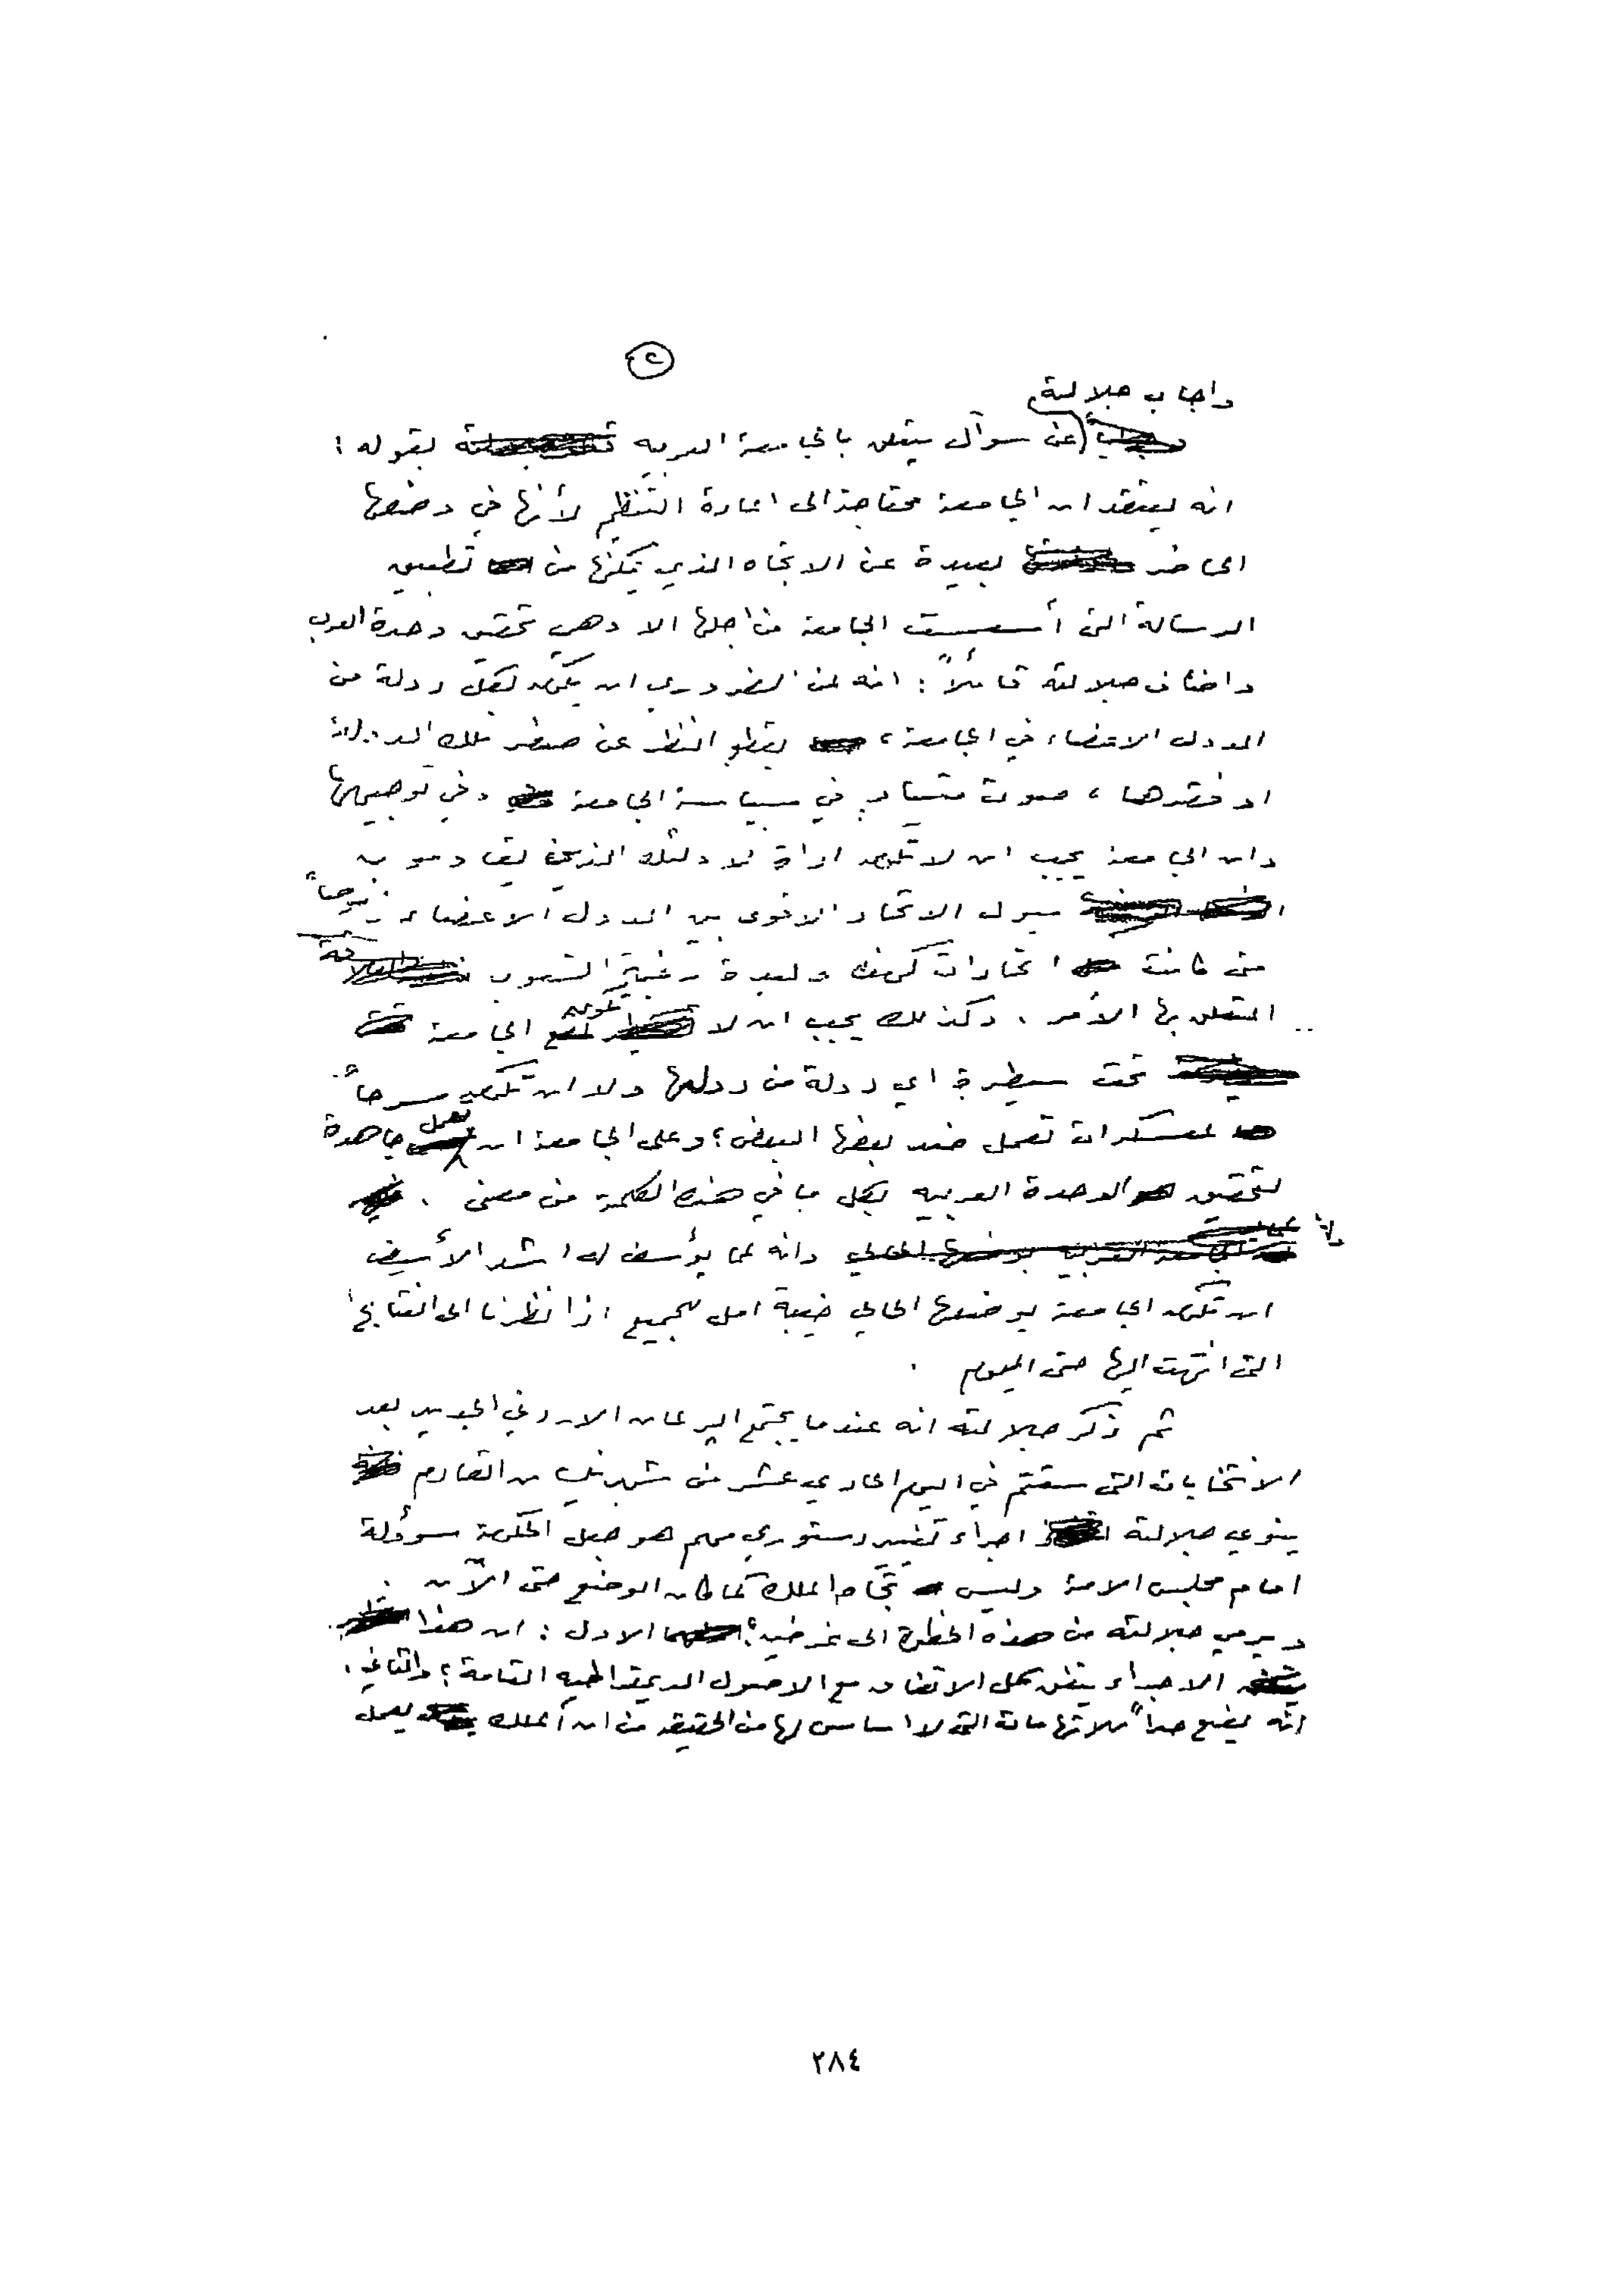 ٢
واجاب جلالته
عن سؤال يتعلق بالجامعة العربيه بقوله :
انه يعتقد ان الجامعة محتاجة الى اعادة التنظيم لأنها في وضعها
الحاضر بعيدة عن الاتجاه الذي يمكنها من تطبيق
الرسالة التي أسست الجامعة من اجلها الا وهي تحقيق وحدة العرب
واضاف جلالته قائلاً : انه لمن الضروري ان يكون لكل دولة من
الدول الاعضاء في الجامعة ، بقطع النظر عن صغر تلك الدولة
او فقرها ، صوت متساو في سياسة الجامعة وفي توجيهها
وان الجامعة يجب ان لا تكون اداة لاولئك الذين يقاومون
ميول الاتحاد الاخوى بين الدول الاعضاء
متى كانت اتحادات كهذه وليدة رغبة الشعوب
المتعلق بها الأمر . وكذلك يجب ان لا تكون الجامعة
تحت سيطرة اي دولة من دولها ولا ان تكون مسرحاً
لمعسكرات تعمل ضد بعضها البعض ؛ وعلى الجامعة ان تعمل جاهدة
لتحقيق الوحدة العربيه بكل ما في هذه الكلمة من معنى .
وانه لمما يؤسف له اشد الأسف
ان تكون الجامعة بوضعها الحالي خيبة امل للجميع اذا نظرنا الى النتائج
التي انتهت اليها حتى اليوم .
ثم ذكر جلالته انه عندما يجتمع البرلمان الاردني الجديد بعد
الانتخابات التي ستتم في اليوم الحادي عشر من شهر نيسان القادم
ينوي جلالته اجراء تغيير دستوري مهم هو جعل الحكومة مسؤولة
امام مجلس الامة وليس تجاه الملك كما كان الوضع حتى الآن .
ويرمي جلالته من هذه الخطوة الى غرضين : الاول : ان هذا
الاجراء يتفق كل الاتفاق مع الاصول الديمقراطيه التامة ؛ والثاني
انه يضع حداً للاتهامات التي لا اساس لها من الحقيقه من ان الملك يعمل
٢٨٤